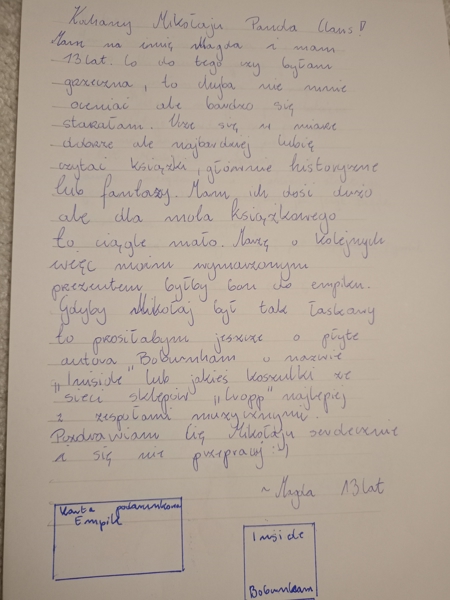 Kochany Mikołaju Panda Claus!
Mam na imię Magda i mam
13 lat. Co do tego czy byłam
grzeczna, to chyba nie mnie
oceniać ale bardzo się
starałam. Uczę się w miarę
dobrze ale najbardziej lubię
czytać książki, głównie historyczne
lub fantazy. Mam ich dość dużo
ale dla mola książkowego
to ciągle mało. Marzę o kolejnych
więc moim wymarzonym
prezentem byłby bon do empiku.
Gdyby Mikołaj był tak łaskawy
to prosiłabym jeszcze o płytę
autora BoBurnham o nazwie
„Inside" lub jakieś koszulki ze
sieci sklepów „Cropp" najlepiej
z zespołami muzycznymi.
Pozdrawiam Cię Mikołaju serdecznie
i się nie przepracuj :)
~ Magda 13 lat
Karta podarunkowa
Empik
Inside
BoBurnham